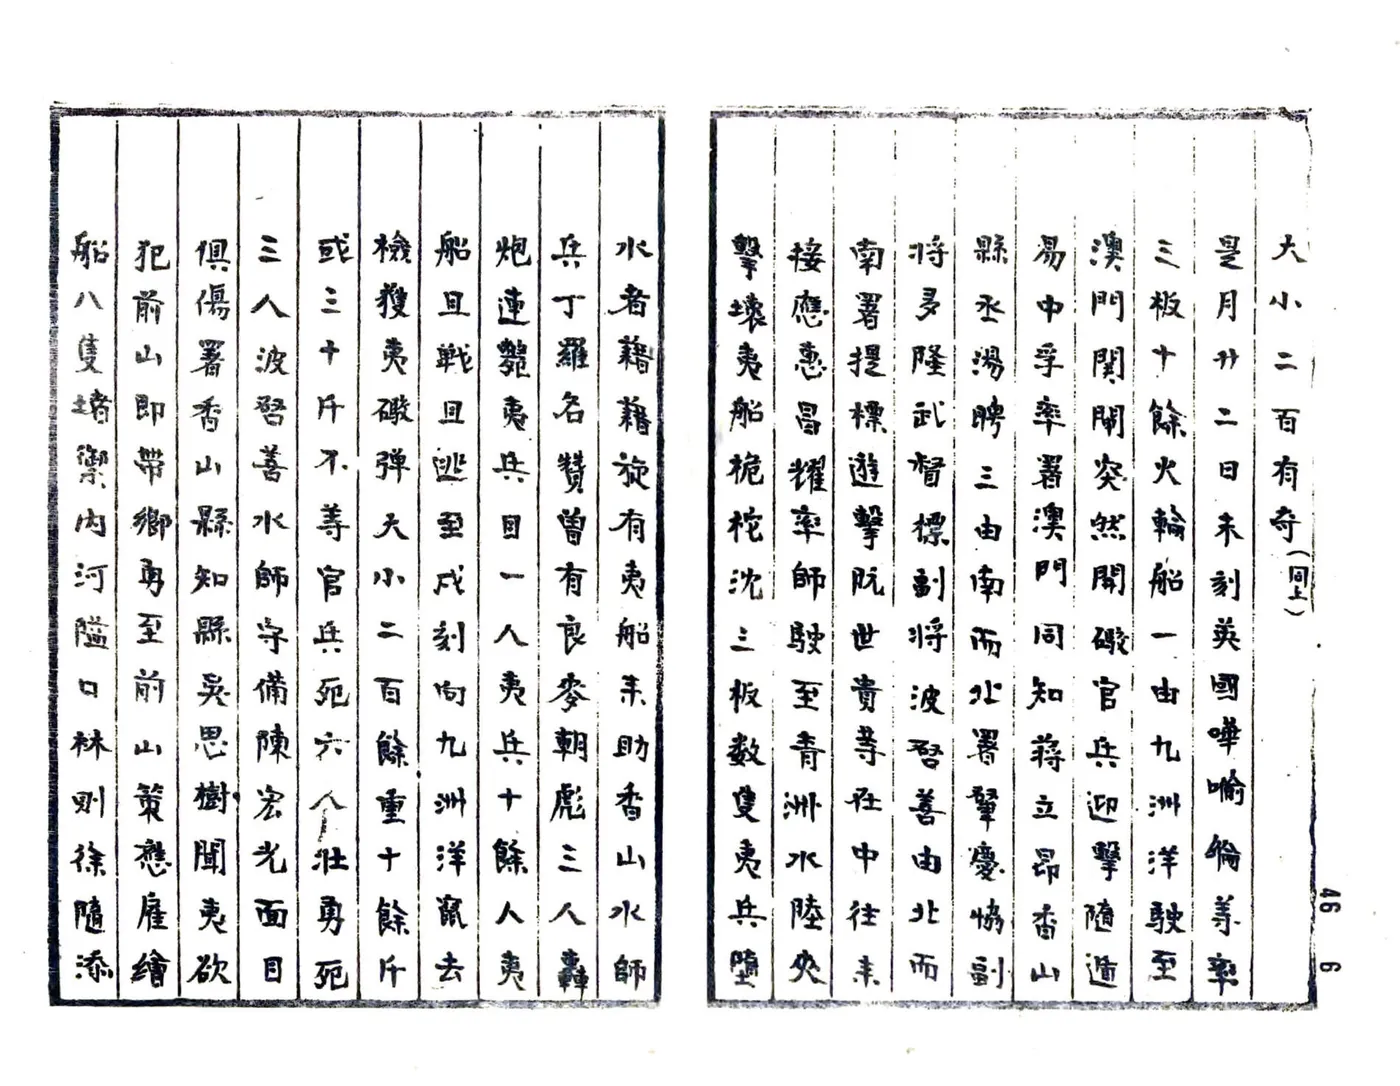 大小二百有奇(同上)
是月廿二日未刻英國嘩喻倫等率
三板十餘火輪船一由九洲洋駛至
澳門関閘突然開礮官兵迎擊隨遁
易中孚率署澳門同知蒋立昂香山
縣丞湯聘三由南而北署肇慶協副
将多隆武督標副将波啓善由北而
南署提標遊擊阮世貴等在中往来
接應惠昌耀率師駛至青洲水陸夾
擊壊夷船桅柁沈三板数隻夷兵墮
水者藉藉旋有夷船来助香山水師
兵丁羅名贊曽有良麥朝彪三人轟
炮連斃夷兵目一人夷兵十餘人夷
船且戦且逃至戌刻向九洲洋竄去
檢獲夷礮弾大小二百餘重十餘斤
或三十斤不等官兵死六人壮勇死
三人波啓善水師守備陳宏光面目
俱傷署香山縣知縣吳思樹聞夷欲
犯前山即帯鄉勇至前山策應雇繪
船八隻堵禦内河隘口林則徐隨添
46 6